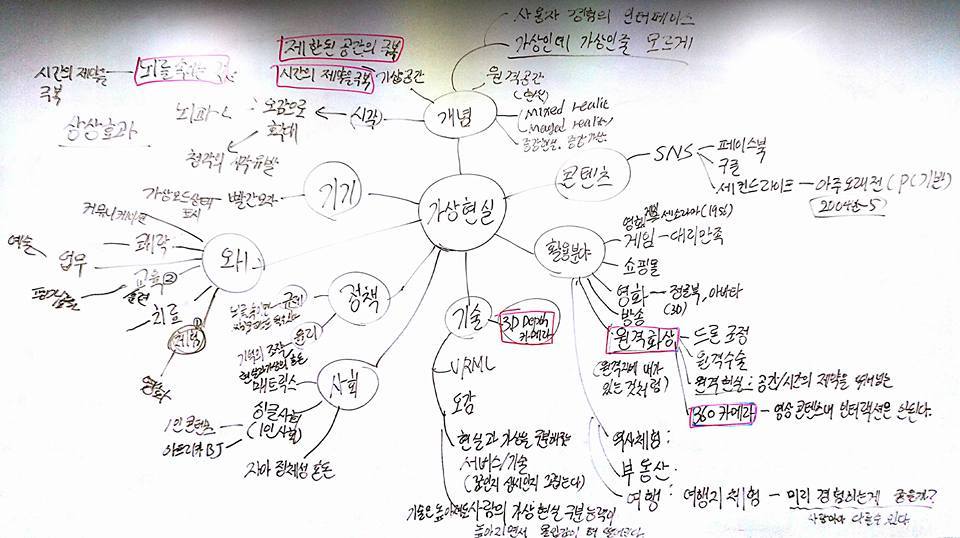 사용자 경험의 인터페이스
가상인데 가상인줄 모르게
제한된 공간의 극복
시간의 제약을 극복
가상공간
원격공간
(현실)
Mixed realit
Merged reality
증강현실,
시간의 제약을
극복
뇌를
상상효과
뇌파
: 오감으로
확대
(시각)
개념
청각의 시각유발
기기
빨간모자
표시
가상현실
콘텐츠
SNS
페이스북
구글
세컨드라이프 - 아주오래전 (PC기반)
2004~5
커뮤니케이션
쾌락
예술
업무
교육 ②
훈련
치료
체험 ①
와!
정책
규제
윤리
기억의 조작
매트릭스
사회
싱글사회
(1인사회)
1인 콘텐츠
아프리카BJ
자아 정체성 혼돈
기술
3D Depth
카메라
VRML
오감
현실과 가상을 구분하는
서비스/기술
(꿈인지 생시인지
기술은 높아
사람의 가상현실 구분능력이
높아지면서 몰입감이 더
활용분야
영화 센소라마 (1956)
게임 - 대리만족
쇼핑몰
영화 - 아바타
(3D)
방송
원격화상
(원격지에 내가
있는 것처럼)
드론 조정
원격수술
원격현실 : 공간/시간의 제약을
360 카메라 - 영상 콘텐츠내 인터랙션은 안된다.
역사체험 :
부동산 :
여행 : 여행지 체험 - 미리 경험하는게 좋을까?
사람마다 다를수 있다